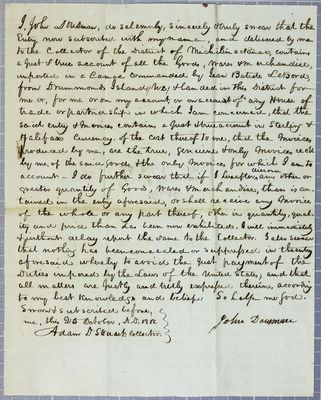 I, John Dousman, do solemnly, sincerely & truly swear that the
Entry now subscribed with my name, and delivered by me
to the Collector of the District of Michilimackinac, contains
a just & true account of all the Goods, Wares & Merchandise,
imported in a Canoe commanded by Jean Batiste
from Drummonds Island & landed in this District from
me or, for me or on my account, or on account of any House of
trade or partnership in which I am concerned, that the
said entry & Invoice contains a just & true account in Sterling &
Halifax Currency, of the Cost thereof to me, that the Invoice
produced by me, are the true, genuine & only Invoices recd
by me of the said goods, & the only Invoices for which I am to
account - I do further swear that if I hereafter discover any other or
greater quantity of Goods, Wares & Merchandise, than is con-
tained in the entry aforesaid, or shall receive any Invoice
of the whole or any part thereof, other in quantity, qual-
ity and price than has been now exhibited, I will immediately
& without delay report the same to the Collector. I also swear
that nothing has been concealed or suppressed in the entry
aforesaid whereby to avoid the just payment of the
Duties imposed by the Laws of the United States, and that
all matters are justly and truly expressed therein, according
to my best knowledge and belief. So help me God.
Sworn & subscribed before,
me, this 25 October, A.D.
John Dousman
Adam D Steuart Collector